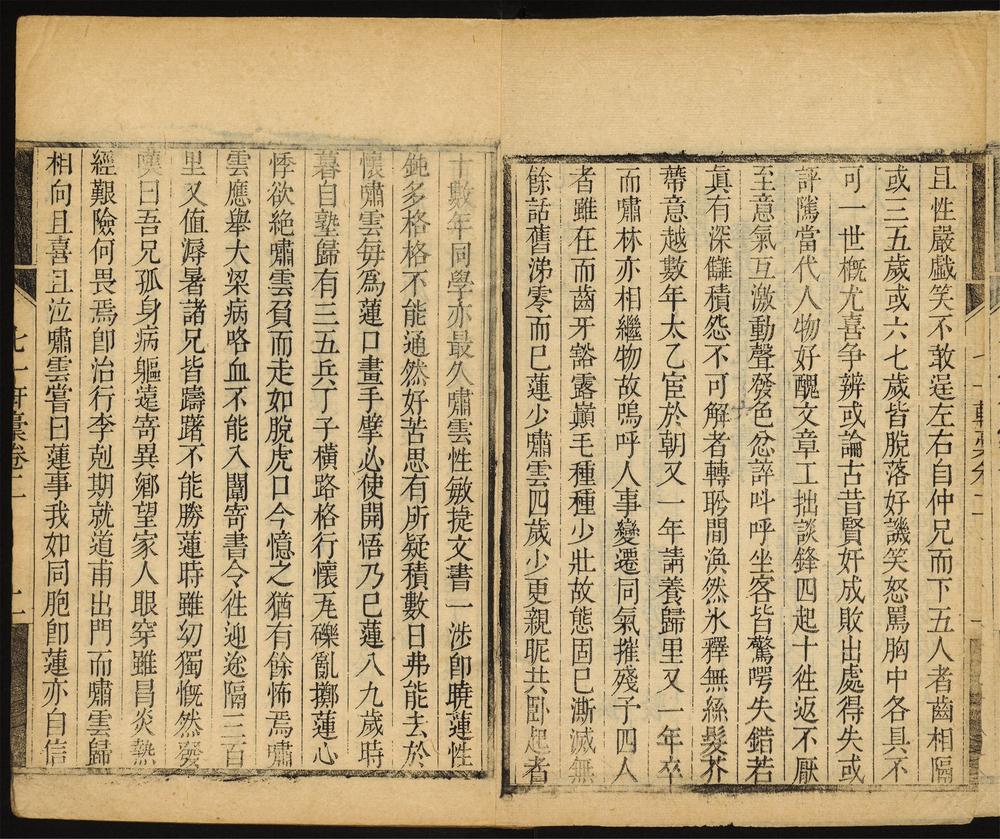 且性嚴戲笑不敢逞左右自仲兄而下五人者齒相隔
或三五歲或六七歲皆脫落好譏笑怒罵胸中各具不
可一世概尤喜争辨或論古昔賢奸成敗出處得失或
評隲當代人物好醜文章工拙談鋒四起十徃返不厭
至意氣互激動聲發色忿誶呌呼坐客皆驚愕失錯若
真有深讎積怨不可解者轉盻間渙然氷釋無絲髮芥
蔕意越數年太乙宦於朝又一年請養歸里又一年卒
而嘯林亦相繼物故嗚呼人事變遷同氣摧殘子四人
者雖在而齒牙豁露巔毛種種少壯故態固已漸滅無
餘話舊涕零而已蓮少嘯雲四歲少更親昵共卧起者
十數年同學亦最久嘯雲性敏捷文書一涉卽曉蓮性
鈍多格格不能通然好苦思有所疑積數日弗能去於
懷嘯雲每爲蓮口畫手擘必使開悟乃已蓮八九歲時
暮自塾歸有三五兵丁子橫路格行懷瓦礫亂擲蓮心
悸欲絕嘯雲負而走如脫虎口今憶之猶有餘怖焉嘯
雲應舉大梁病咯血不能入闈寄書令徃迎途隔三百
里又值溽暑諸兄皆躊躇不能勝蓮時雖幼獨慨然發
嘆曰吾兄孤身病軀遠寄異鄉望家人眼穿雖昌炎熱
經艱險何畏焉卽治行李剋期就道甫出門而嘯雲歸
相向且喜且泣嘯雲嘗曰蓮事我如同胞卽蓮亦自信
卷二
二